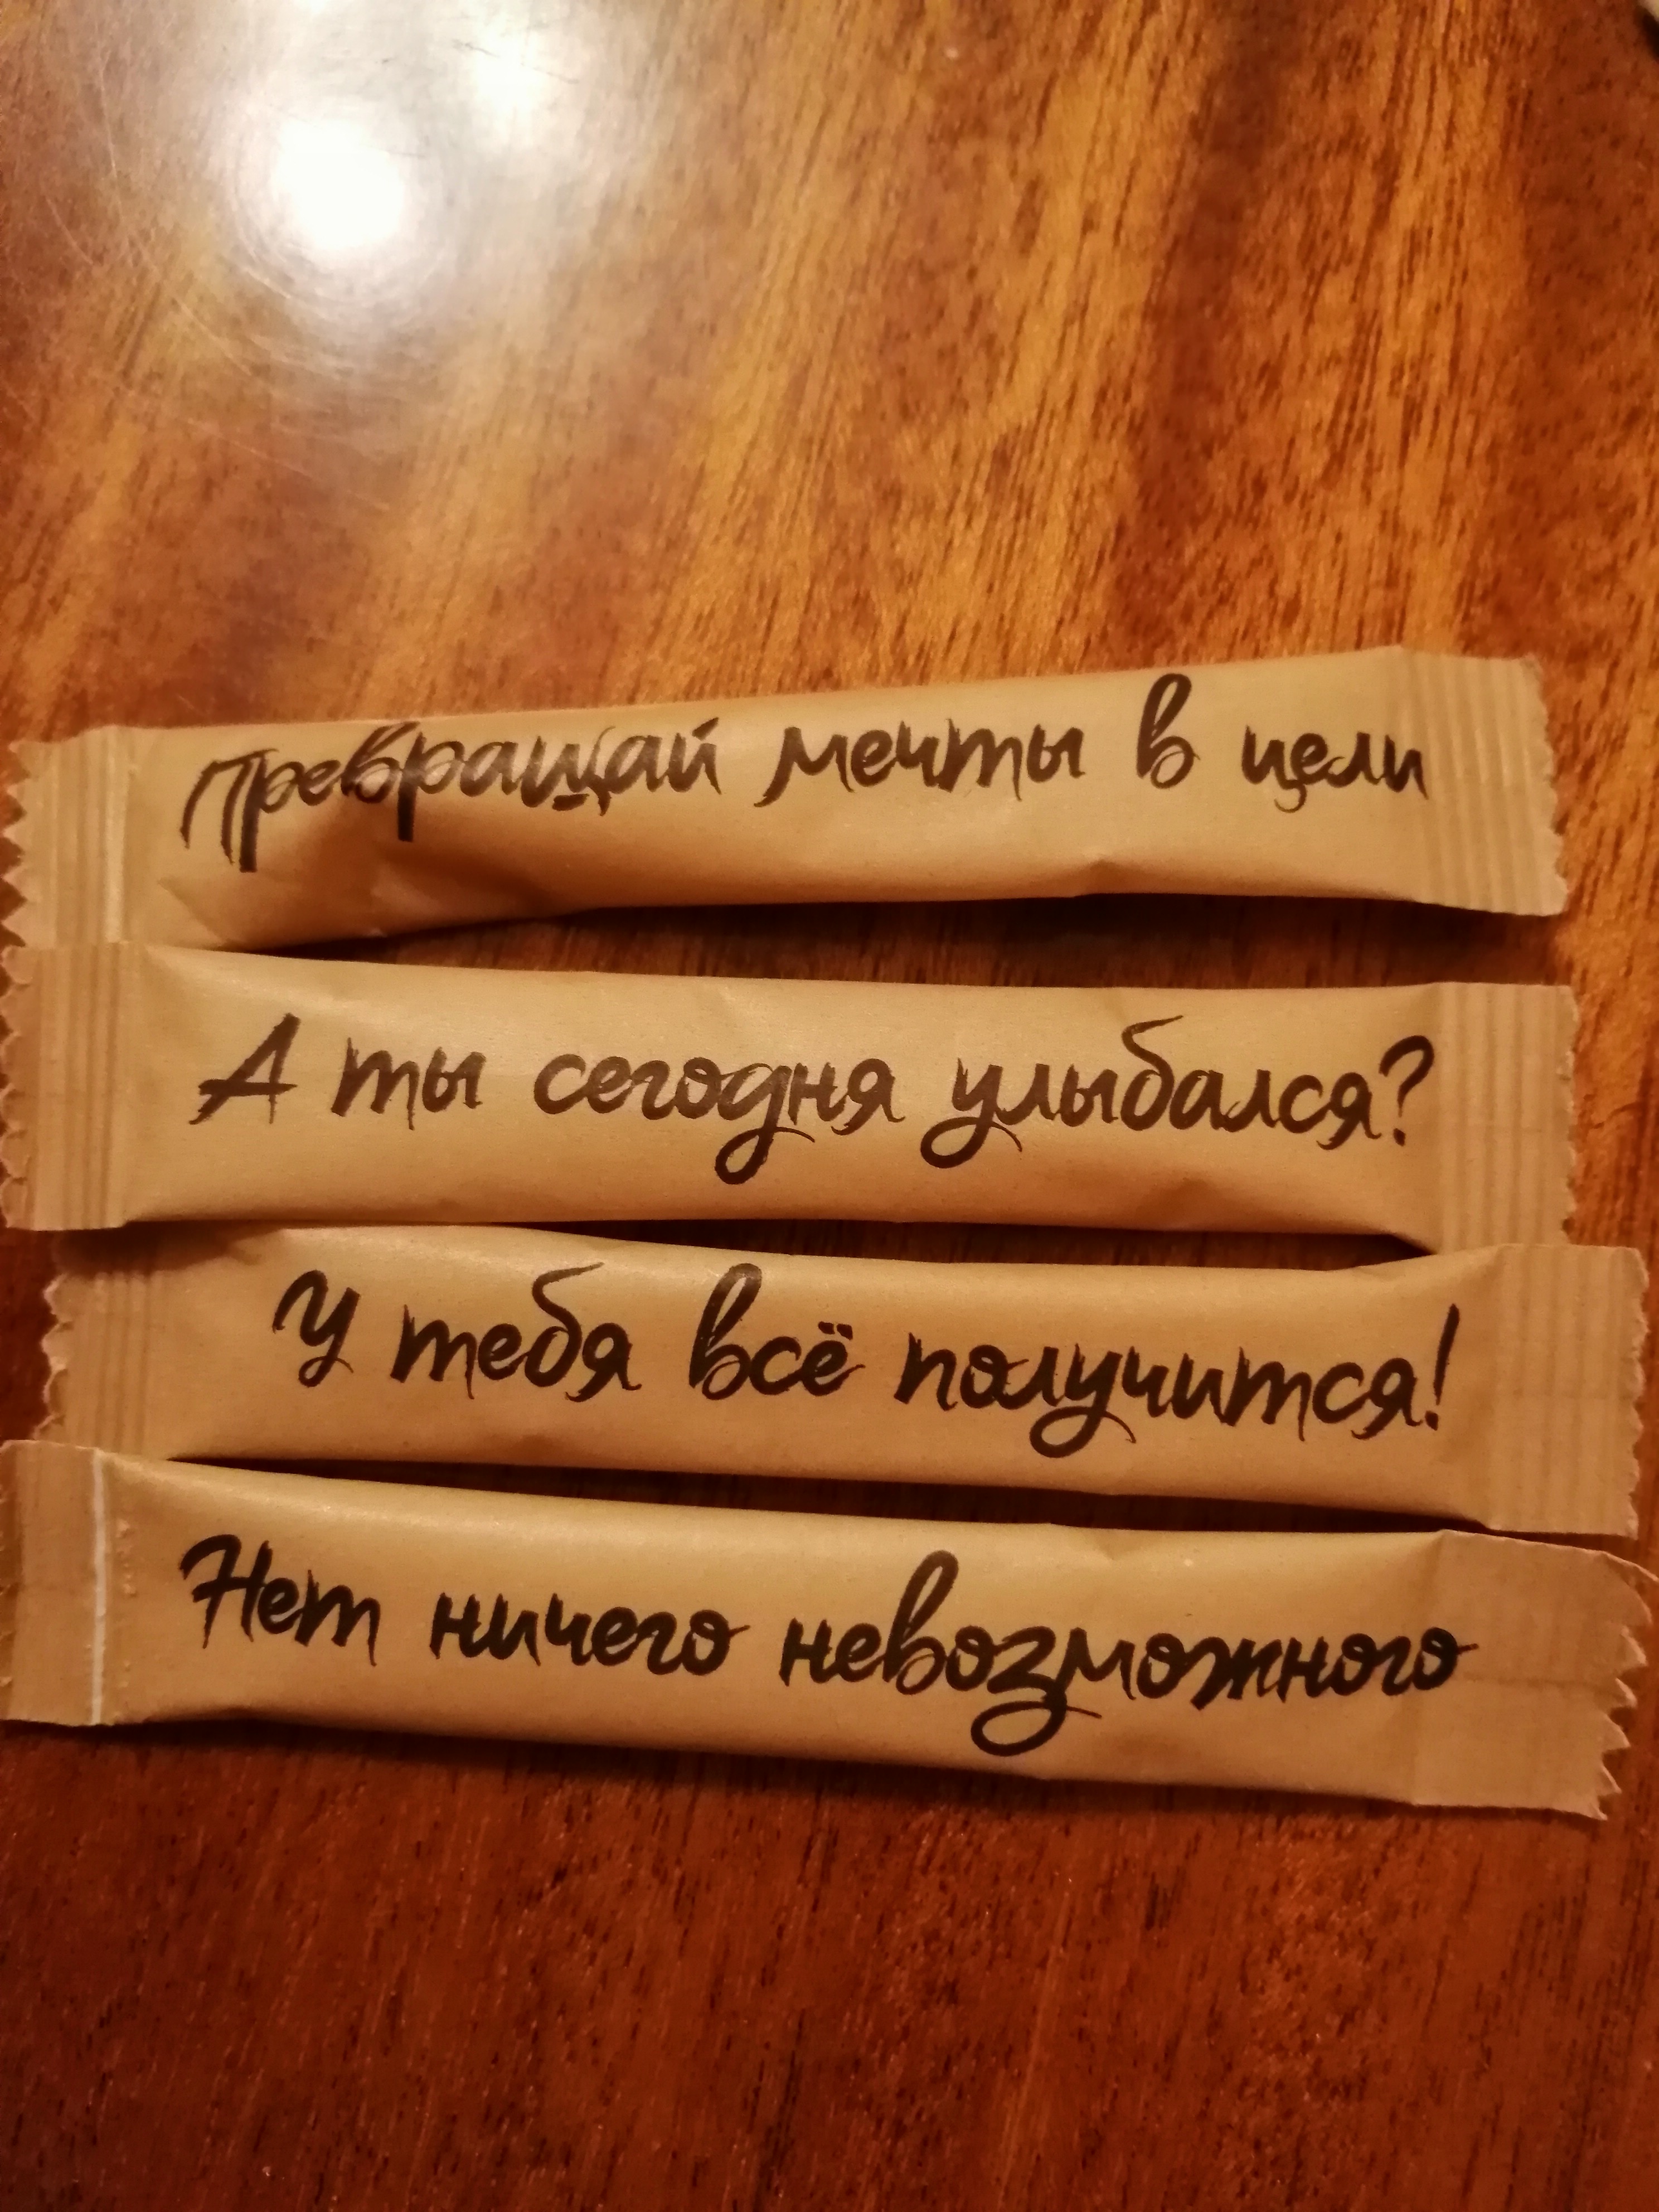 Превращай мечты в цели
А ты сегодня улыбался?
У тебя всё получится!
Нет ничего невозможного